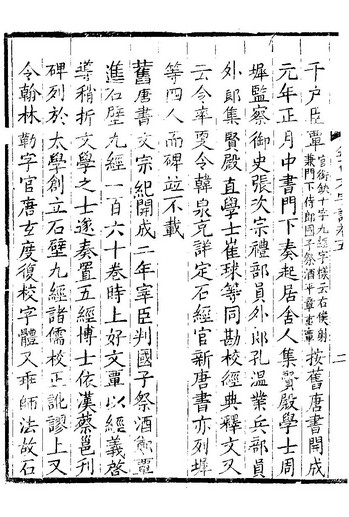 千戶臣覃官銜缺十字九經字樣云右僕射兼門下侍郎國子祭酒平章事覃按舊唐書開成
元年正月中書門下奏起居舍人集賢殿學士周
墀監察御史張次宗禮部員外郎孔溫業兵部員
外郎集賢殿直學士崔球等同勘校經典釋文又
云令率更令韓泉充詳定石經官新唐書亦列墀
等四人而碑竝不載
舊唐書文宗紀開成二年宰臣判國子祭酒鄭覃
進石壁九經一百六十卷時上好文覃以經義啓
導稍折文學之士遂奏置五經博士依漢蔡邕刊
碑列於太學創立石壁九經諸儒校正訛謬上又
令翰林勒字官唐玄度復校字體又乖師法故石